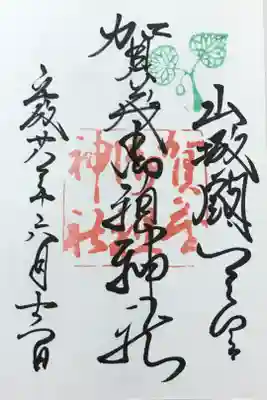 山城國一之宮
賀茂御祖神社
年六月
賀茂
御祖
神社